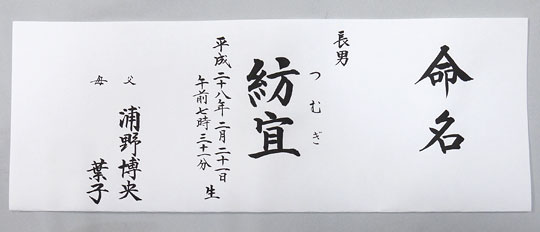 命名
長男
つむぎ
紡宜
平成二十八年二月二十一日
午前七時三十一分 生
父 浦野博央
母 葉子